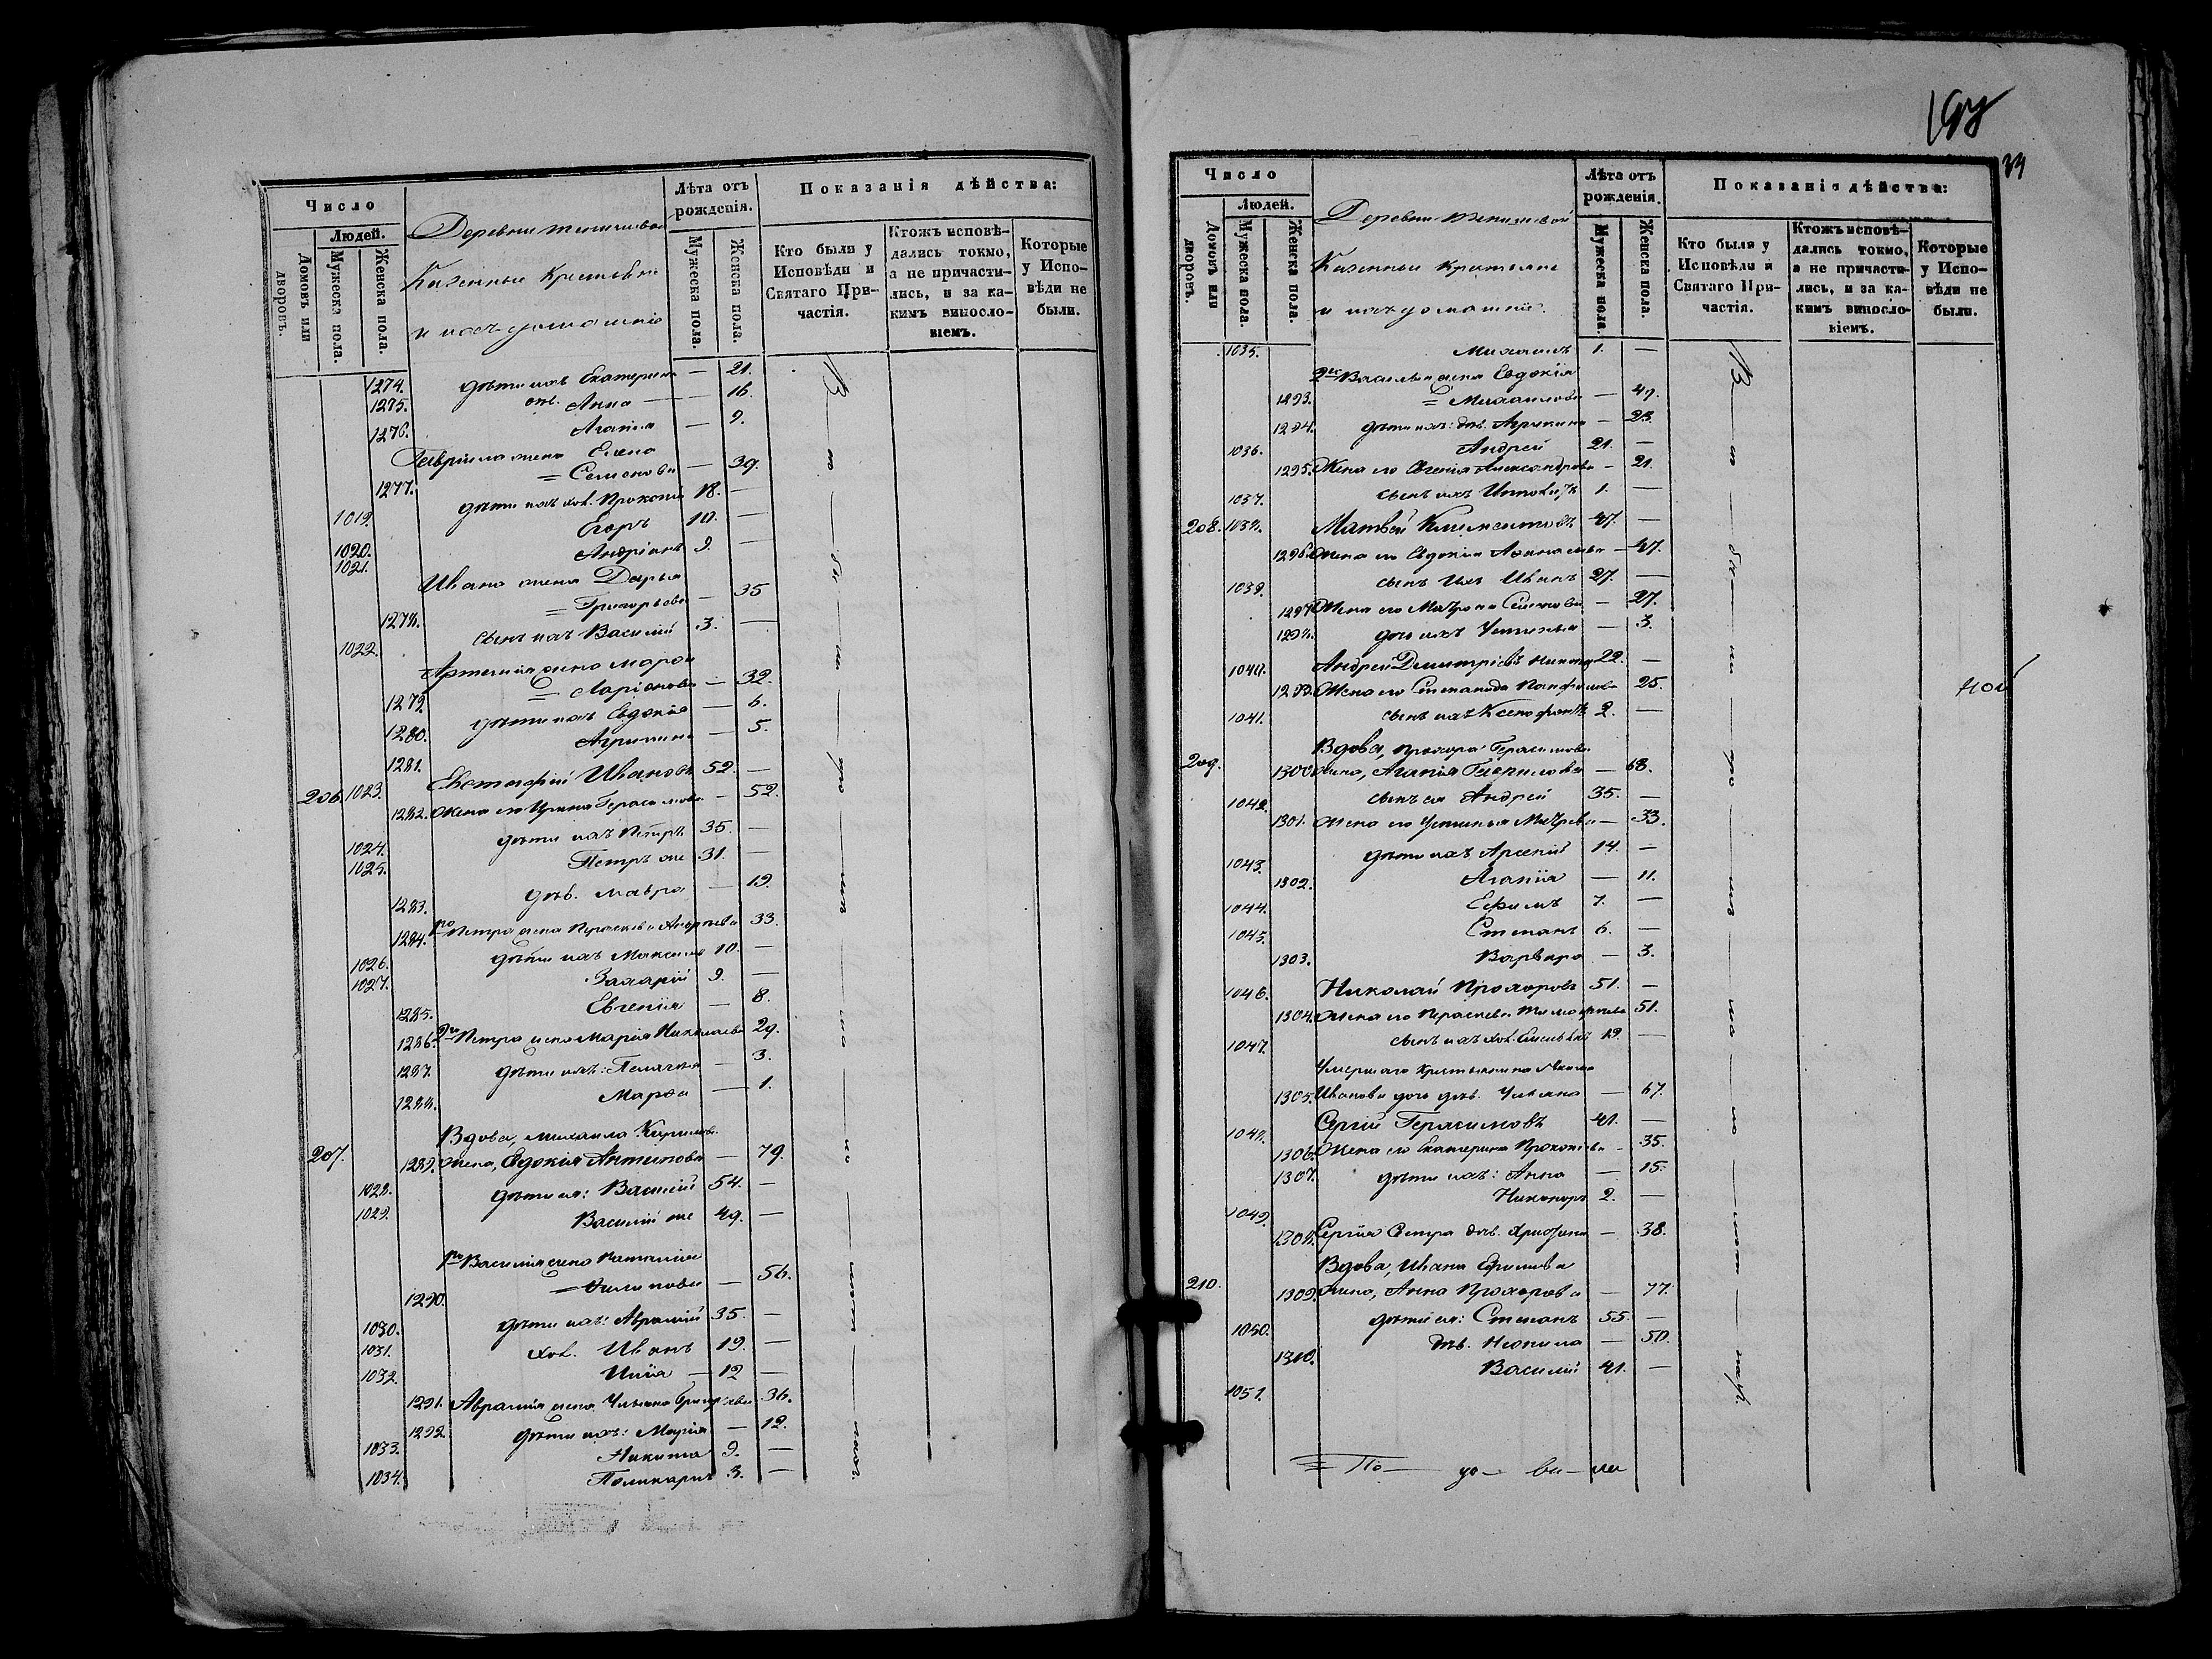 Число
Людей.
Домовъ или дворовъ.
Мужеска пола.
Женска пола.
Деревни
Казенные Крестьяне
и ихъ домашніе
Лѣта отъ рожденія.
Мужеска пола.
Женска пола.
Показанія дѣйства:
Кто были у Исповѣди и Святаго При-
частія.
Ктожъ исповѣ-
дались токмо,
а не причасти-
лись, и за ка-
кимъ виносло-
віемъ.
Которые
у Испо-
вѣди не
были.
1274. дѣти ихъ Екатерина — 21.
1275. дѣв. Анна — 16.
1276. Агапія — 9.
Гавріила жена Елена
1277. = Семенова — 39.
1019. дѣти ихъ хол. Прокопій 18. —
1020. Егоръ 10. —
1021. Андріанъ 9. —
Ивана жена Дарья
1278. = Григорьева — 35
1022. сынъ ихъ Василій 3. —
Артемія жена Марѳа
1279. = Ларіонова — 32.
1280. дѣти ихъ Евдокія — 6.
1281. Агрипина — 5.
206. 1023. Евстафій Ивановъ 52. —
1282. Жена его Ирина Герасимова — 52.
1024. дѣти ихъ Петръ 35. —
1025. Петръ же 31. —
1283. дѣв. Мавра — 19.
1284. 1го Петра жена Праскева Андреева 33.
1026. дѣти ихъ Максимъ 10. —
1027. Захарій 9. —
1285. Евгенія — 8.
1286. 2го Петра жена Марія Николаева 29.
1287. дѣти ихъ: Пелагея — 3.
1288. Марѳа — 1.
Вдова, Михаила Кирилова
207. 1289. жена, Евдокія Антипова — 79.
1028. дѣти ея: Василій 54. —
1029. Василій же 49. —
1го Василія жена Наталія
1290. = Филипова — 56.
1030. дѣти ихъ: Аврамій 35. —
1031. хол. Иванъ 19. —
1032. Илія — 12 —
1291. Аврамія жена Ульяна Григорьева 36.
1292. дѣти ихъ: Марія — 12.
1033. Никита 9. —
1034. Поликарпъ 3. —
34
Число
Людей.
Домовъ или дворовъ.
Мужеска пола.
Женска пола.
Деревни
Казенные Крестьяне
и ихъ домашніе.
Лѣта отъ рожденія.
Мужеска пола.
Женска пола.
Показанія дѣйства:
Кто были у
Исповѣди и
Святаго При-
частія.
Ктожъ исповѣ-
дались токмо,
а не причасти-
лись, и за ка-
кимъ виносло-
віемъ.
Которые
у Испо-
вѣди не
были.
1035. Михаилъ 1. —
2го Василья жена Евдокія
1293. = Михаилова — 49.
1294. дѣти ихъ: дѣв. Агрипина — 23.
1036. Андрей 21. —
1295. Жена его Евгенія Александрова — 21.
1037. сынъ ихъ 1. —
208. 1038. Матвей Климентовъ 47. —
1296. Жена его Евдокія Аѳанасьева — 47.
1039. сынъ ихъ Иванъ 27. —
1297. Жена его Матрона Семенова — 27.
1298. дочь ихъ Устинья — 3.
1040. Андрей Димитріевъ 22. —
1299. Жена его Степанида Панфилова 25.
1041. сынъ ихъ Ксенофонтъ 2. —
Вдова, Прохора Герасимова
209. 1300. жена, Агапія Гаврилова — 68.
1042. сынъ ея Андрей 35. —
1301. Жена его Устинья — 33.
1043. дѣти ихъ Арсеній 14. —
1302. Агапія — 11.
1044. Ефимъ 7. —
1045. Степанъ 6. —
1303. Варвара — 3.
1046. Николай Прохоровъ 51. —
1304. Жена его Праскева Тимофеева 51.
1047. сынъ ихъ хол. 19. —
Умершаго крестьянина
1305. Иванова дочь дѣв. Ульяна — 67.
1048. Сергій Герасимовъ 41. —
1306. Жена его Екатерина Прокопьева — 35.
1307. дѣти ихъ: Анна — 15.
1049. Никаноръ 2. —
1308. Сергія сестра дѣв. — 38.
Вдова, Ивана
210. 1309. жена, Анна Прохорова — 77.
1050. дѣти ея: Степанъ 55. —
1310. дѣв. Неонила — 50.
1051. Василій 41. —